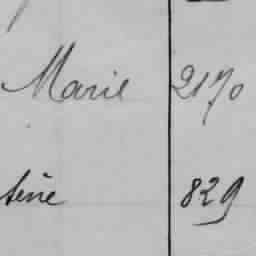 Marie 2170
sène 829